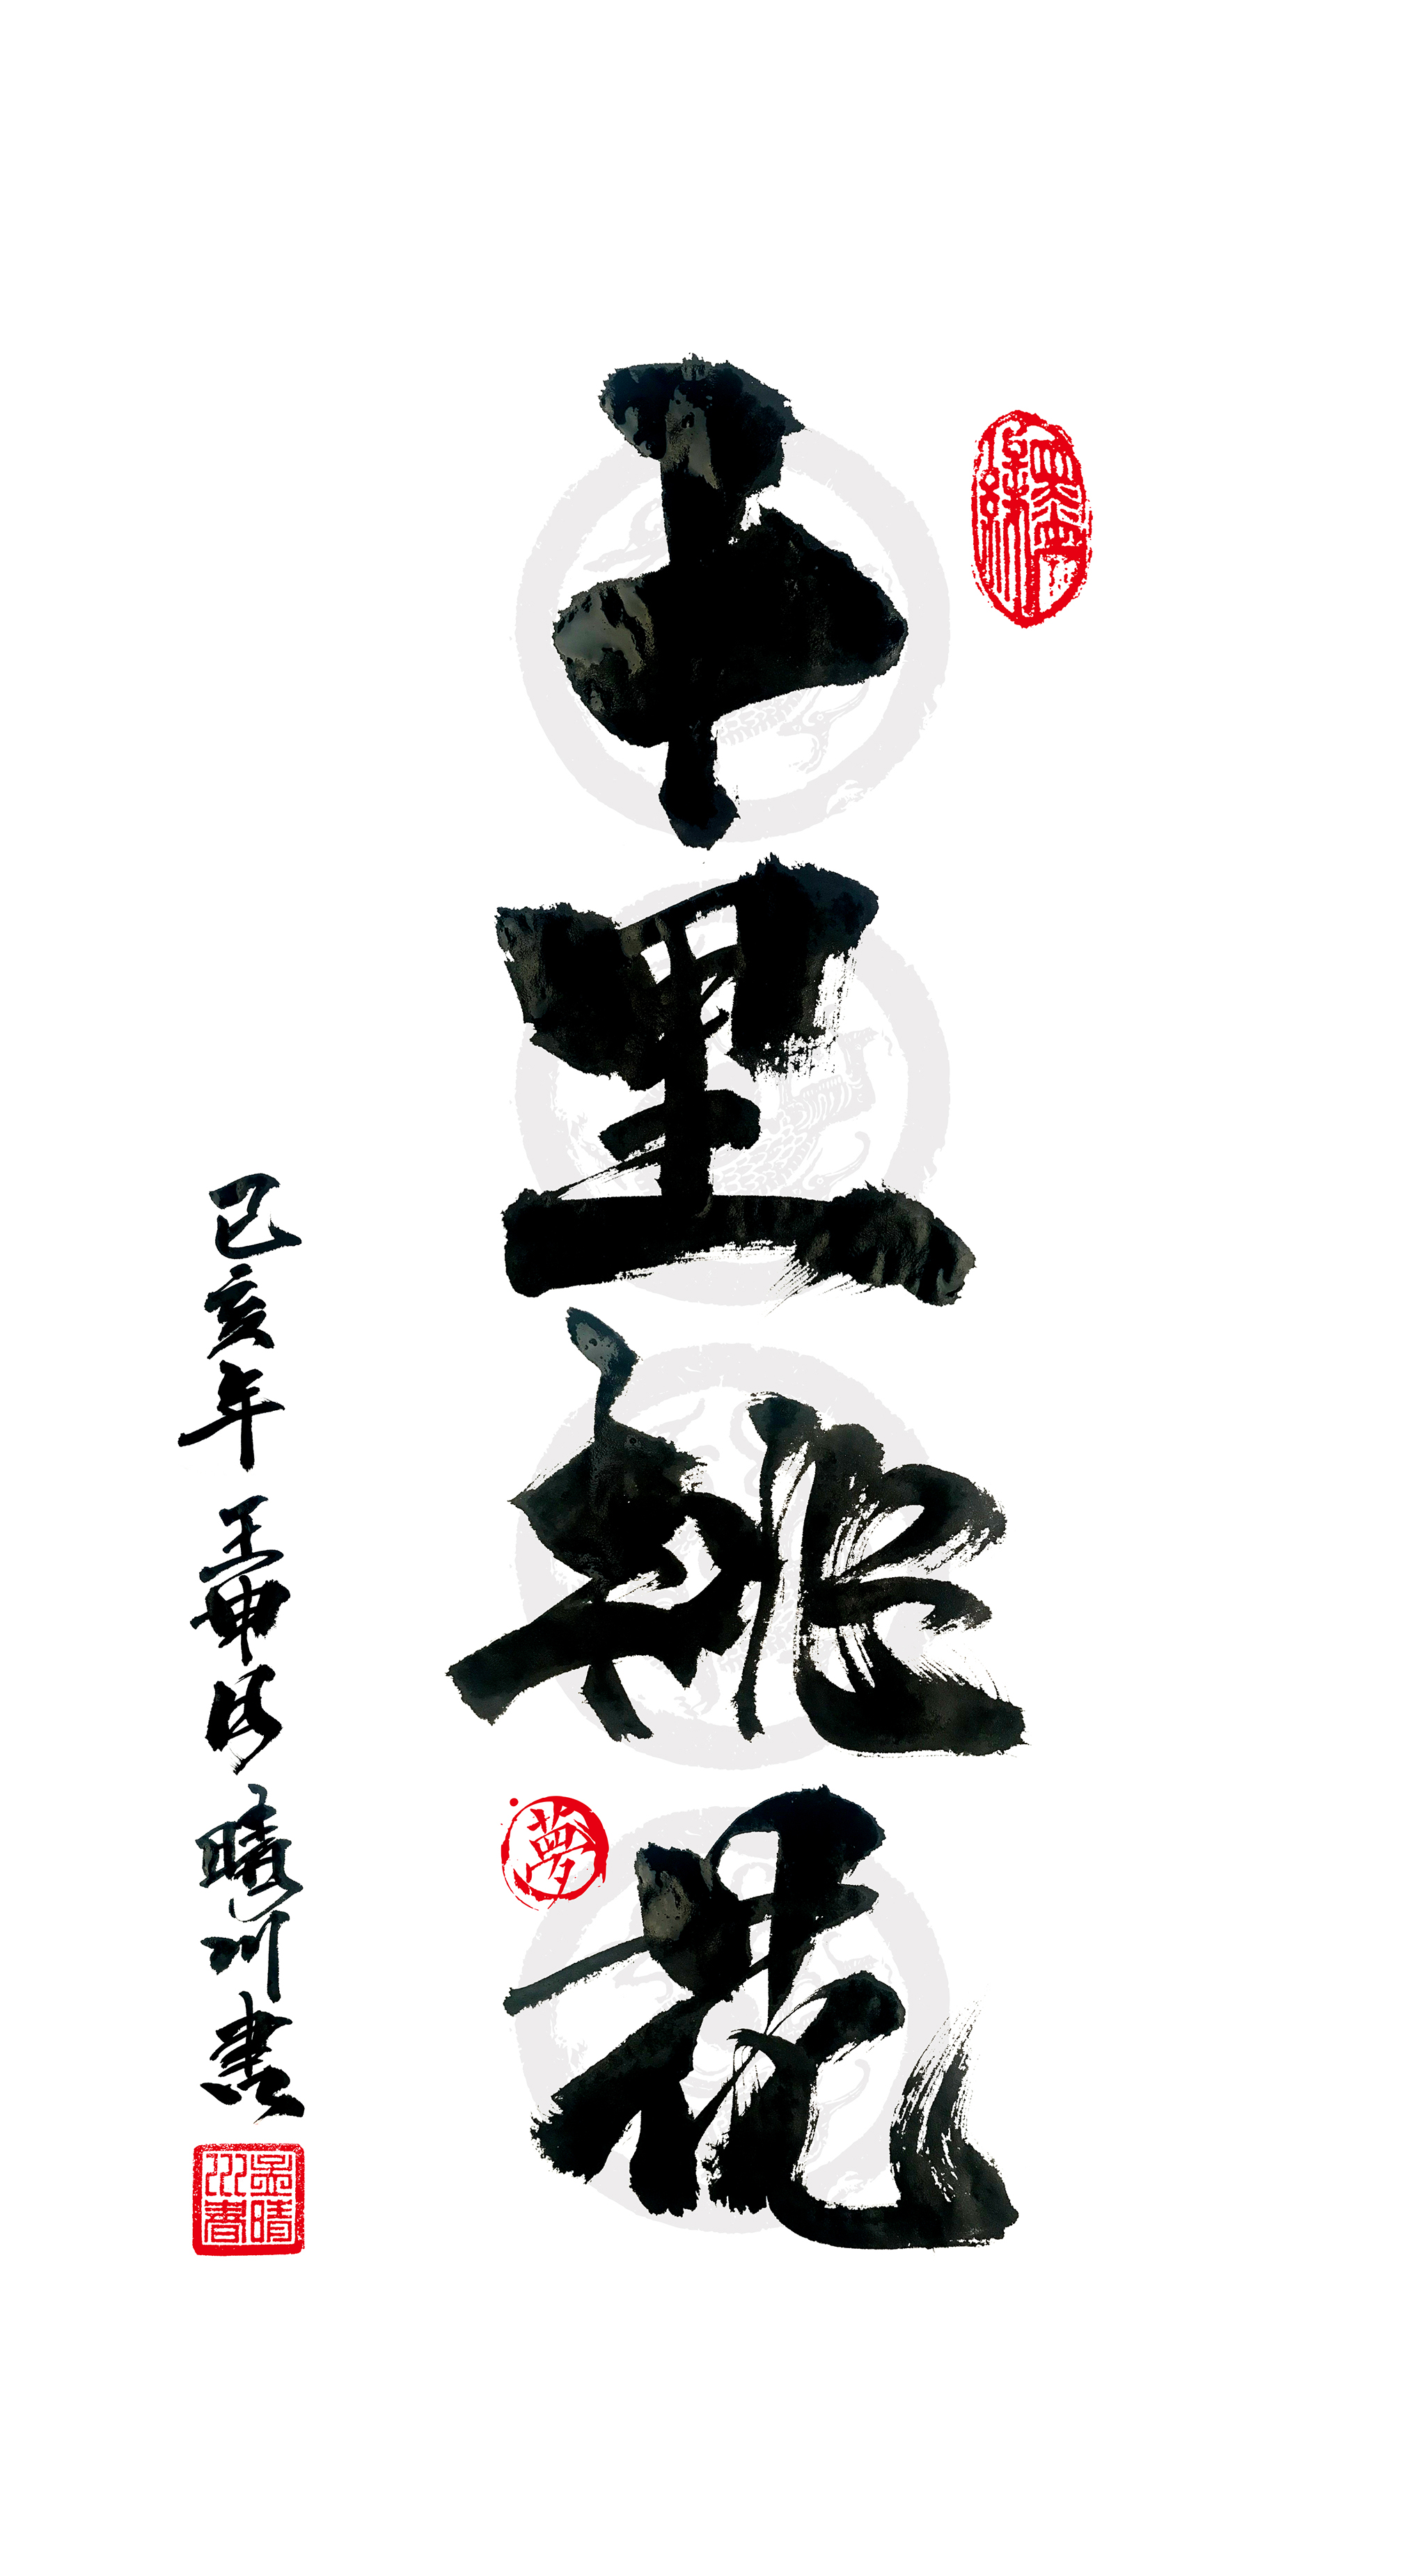 千里桃花
夢
己亥年 壬申月 晴川書
孟晴
川書